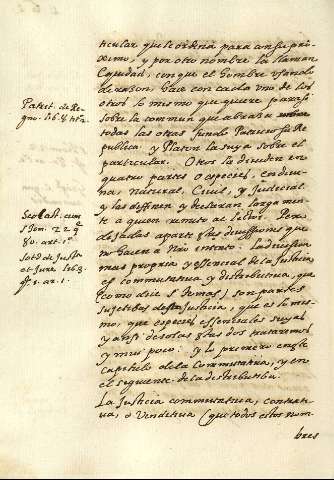 ticular que le ordena para con su pro-
ximo, y por otro nombre la llaman
Equidad, con que el hombre usando
de razon, hace con cada uno de los
otros lo mismo que quiere para si
sobre la comun que abraza
todas las otras fundo Patricio su Re
publica y Platon la suya sobre el
particular. Otros la dividen en
quatro partes o especies,
Natural, Civil, y Judicial
y las diffinen y declaran larga men-
te a quien remito al lector. Pero
dexadas aparte estas divissiones que
no hacen a Nro intento. La division
mas propria y essencial de la Justicia
es commutativa y distributiva, que
como dice S. Tomas son partes
sujetibas de la Justicia, que es lo mis-
mo, que especies essenciales suyas
y ansi de solas estas dos trataremos
y muy poco: y lo primero en este
capitulo de la Commutativa, y en
el siguiente de la distributiba.
La Justicia commutativa, contrati-
va, o Venditiva (que todos estos nom
bres
Patrit. de Re-
gno. lib. 8. tit. 2.
Scolast. cum
S. Tom. 2 2 q
80. art. 1.
Soto de Justit.
et Jure lib. 3.
q. 1. ar. 1.